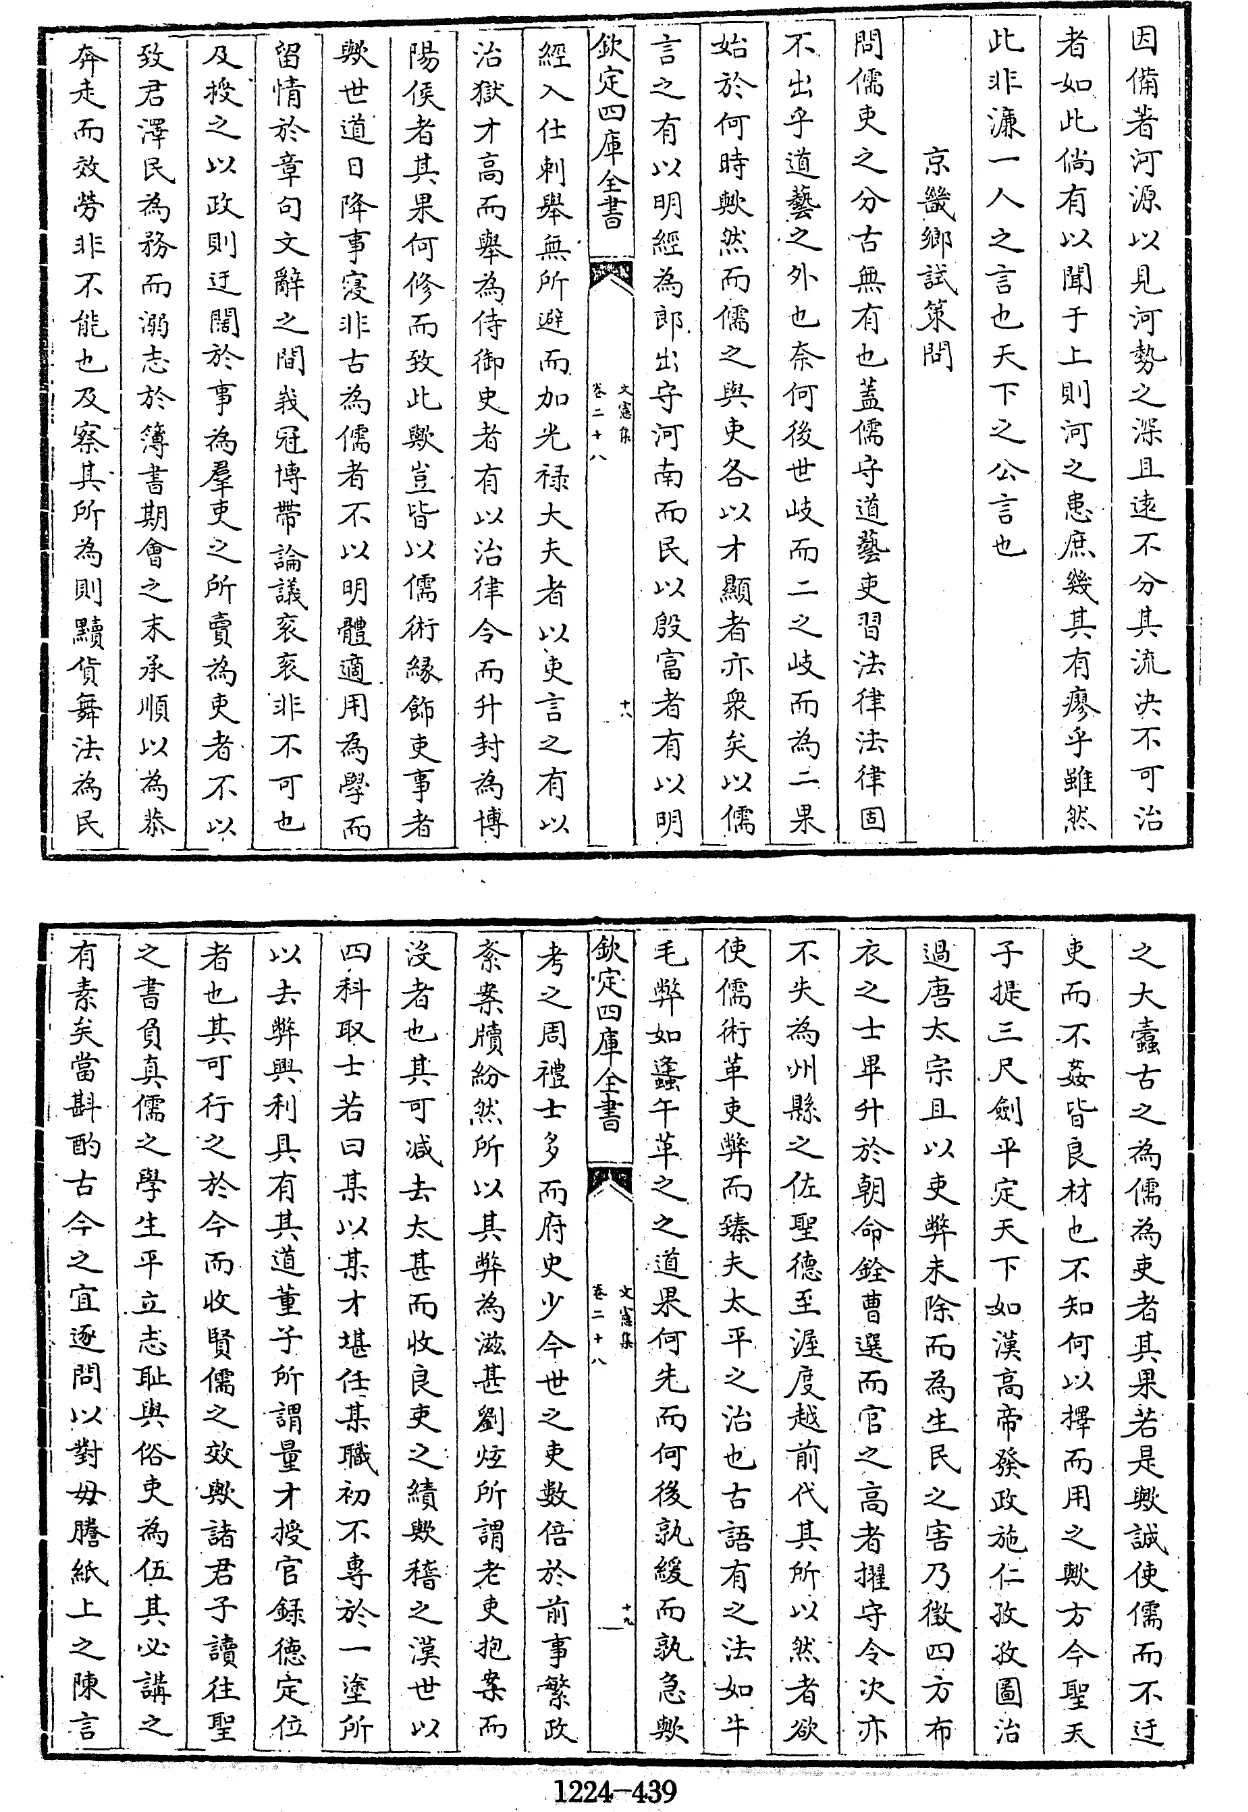 因備著河源以見河勢之深且遠不分其流決不可治
者如此倘有以聞于上則河之患庶幾其有瘳乎雖然
此非濂一人之言也天下之公言也
京畿鄉試策問
問儒吏之分古無有也蓋儒守道藝吏習法律法律固
不出乎道藝之外也奈何後世岐而二之岐而為二果
始於何時歟然而儒之與吏各以才顯者亦衆矣以儒
言之有以明經為郎出守河南而民以殷富者有以明
欽定四庫全書
文憲集
卷二十八
十八
經入仕刺舉無所避而加光祿大夫者以吏言之有以
治獄才高而舉為侍御史者有以治律令而升封為博
陽侯者其果何修而致此歟豈皆以儒術緣飾吏事者
歟世道日降事寖非古為儒者不以明體適用為學而
留情於章句文辭之間峩冠博帶論議衮衮非不可也
及授之以政則迂闊於事為羣吏之所賣為吏者不以
致君澤民為務而溺志於簿書期會之末承順以為恭
奔走而效勞非不能也及察其所為則黷貨舞法為民
之大蠹古之為儒為吏者其果若是歟誠使儒而不迂
吏而不姦皆良材也不知何以擇而用之歟方今聖天
子提三尺劍平定天下如漢高帝發政施仁孜孜圖治
過唐太宗且以吏弊未除而為生民之害乃徵四方布
衣之士畢升於朝命銓曹選而官之高者擢守令次亦
不失為州縣之佐聖德至渥度越前代其所以然者欲
使儒術革吏弊而臻夫太平之治也古語有之法如牛
毛弊如蠭午革之之道果何先而何後孰緩而孰急歟
欽定四庫全書
文憲集
卷二十八
十九
考之周禮士多而府史少今世之吏數倍於前事繁政
紊案牘紛然所以其弊為滋甚劉炫所謂老吏抱案而
沒者也其可减去太甚而收良吏之績歟稽之漢世以
四科取士若曰某以某才堪任某職初不專於一塗所
以去弊興利具有其道董子所謂量才授官録德定位
者也其可行之於今而收賢儒之效歟諸君子讀往聖
之書負真儒之學生平立志恥與俗吏為伍其必講之
有素矣當斟酌古今之宜逐問以對毋謄紙上之陳言
1224-439